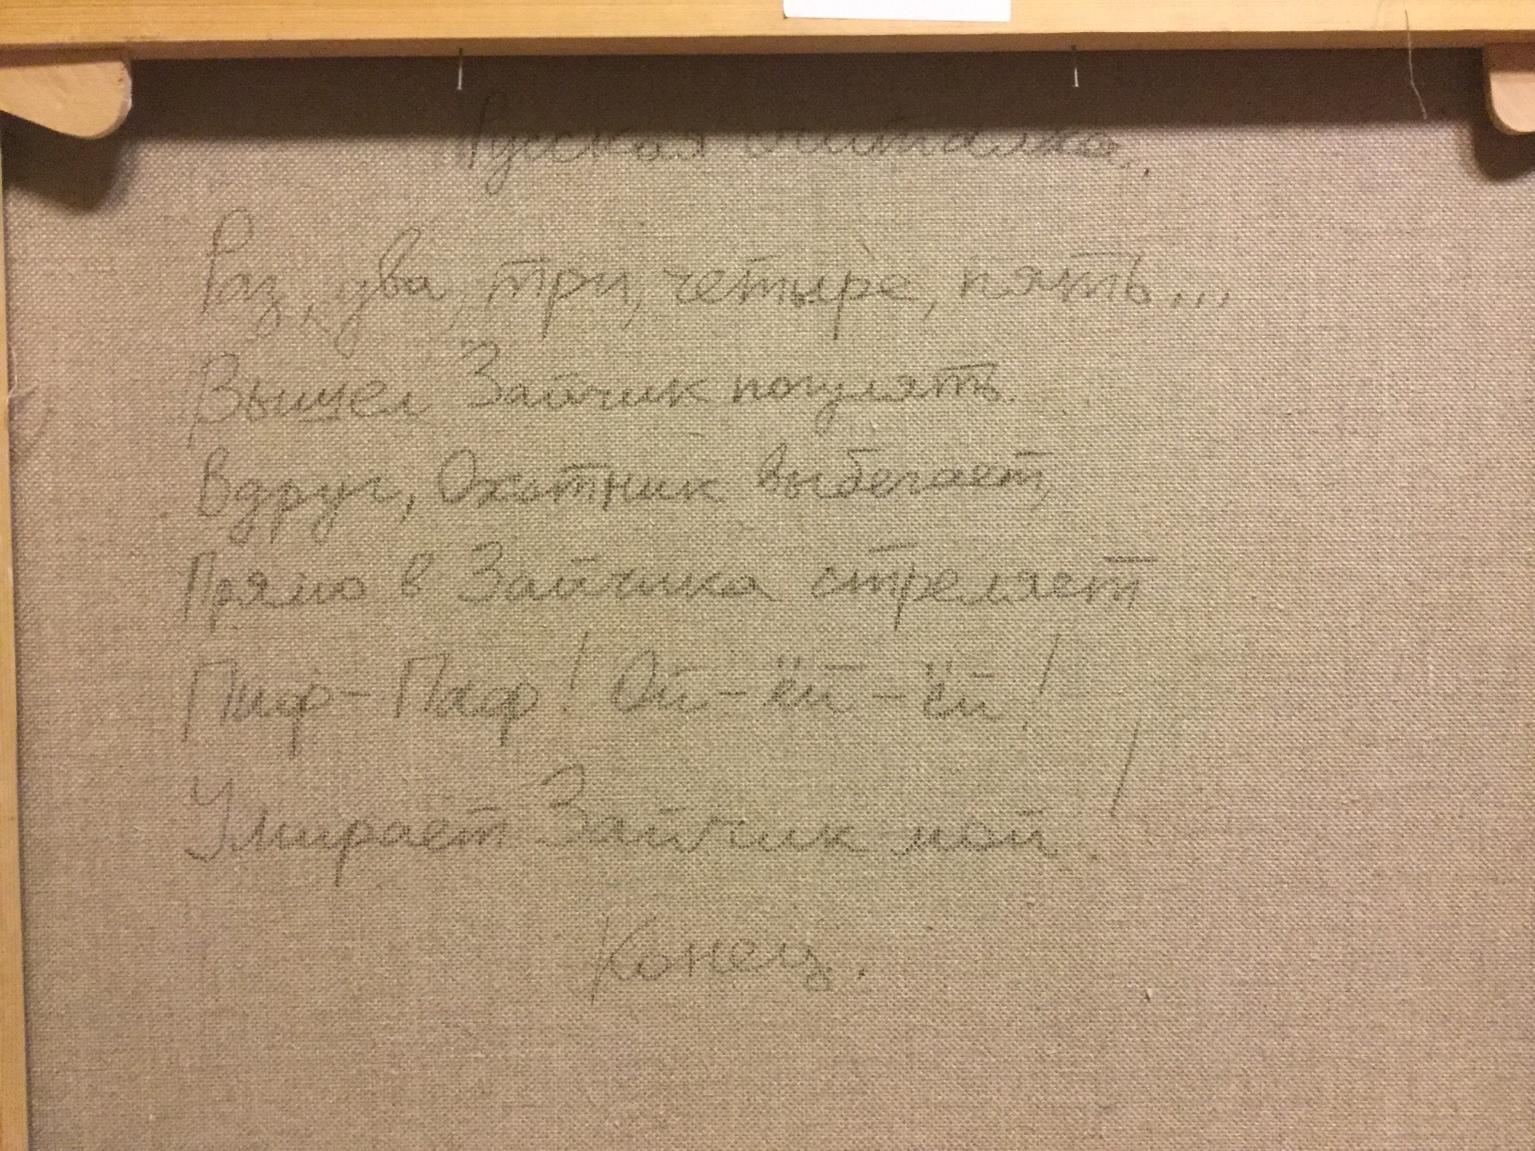 Русская считалка.
Раз, два, три, четыре, пять...
Вышел Зайчик погулять.
Вдруг, Охотник выбегает,
Прямо в Зайчика стреляет
Пиф-Паф! Ой-ёй-ёй!
Умирает Зайчик мой!
Конец.